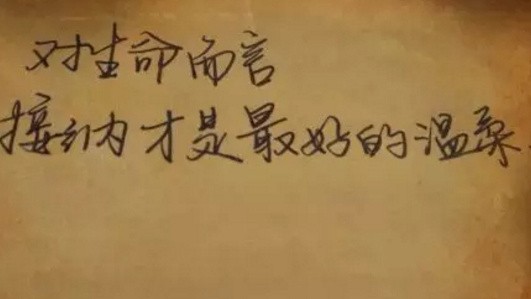 对生命而言
接纳才是最好的温柔.